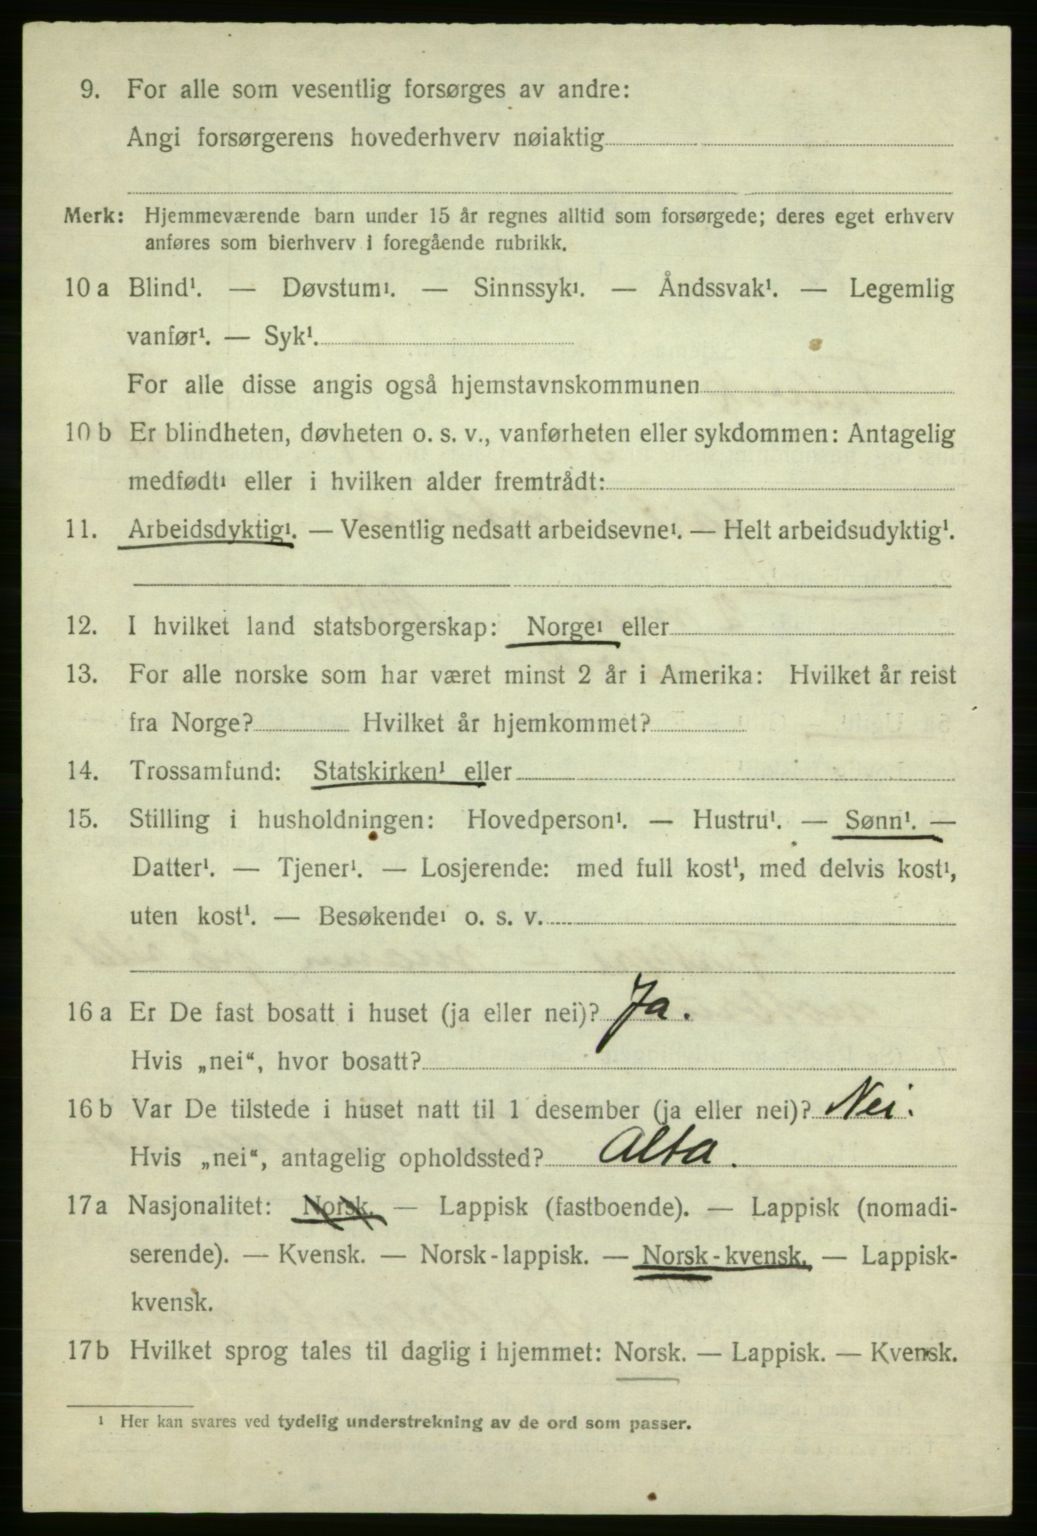 9. For alle som vesentlig forsørges av andre:
Angi forsørgerens hovederhverv nøiaktig
Merk: Hjemmeværende barn under 15 år regnes alltid som forsørgede; deres eget erhverv
anføres som bierhverv i foregående rubrikk.
10 a Blind¹. — Døvstum¹. — Sinnssyk¹. — Åndssvak¹. — Legemlig
vanfør¹. — Syk¹.
For alle disse angis også hjemstavnskommunen
10 b Er blindheten, døvheten o. s. v., vanførheten eller sykdommen: Antagelig
medfødt¹ eller i hvilken alder fremtrådt:
11. Arbeidsdyktig¹. — Vesentlig nedsatt arbeidsevne¹. — Helt arbeidsudyktig¹.
12. I hvilket land statsborgerskap: Norge¹ eller
13. For alle norske som har været minst 2 år i Amerika: Hvilket år reist
fra Norge? Hvilket år hjemkommet?
14. Trossamfund: Statskirken¹ eller
15. Stilling i husholdningen: Hovedperson¹. — Hustru¹. — Sønn¹. —
Datter¹. — Tjener¹. — Losjerende: med full kost¹, med delvis kost¹,
uten kost¹. — Besøkende¹ o. s. v.
16 a Er De fast bosatt i huset (ja eller nei)? Ja.
Hvis „nei“, hvor bosatt?
16 b Var De tilstede i huset natt til 1 desember (ja eller nei)? Nei.
Hvis „nei“, antagelig opholdssted? Alta.
17 a Nasjonalitet: Norsk. — Lappisk (fastboende). — Lappisk (nomadi-
serende). — Kvensk. — Norsk-lappisk. — Norsk-kvensk. — Lappisk-
kvensk.
17 b Hvilket sprog tales til daglig i hjemmet: Norsk. — Lappisk. — Kvensk.
¹ Her kan svares ved tydelig understrekning av de ord som passer.